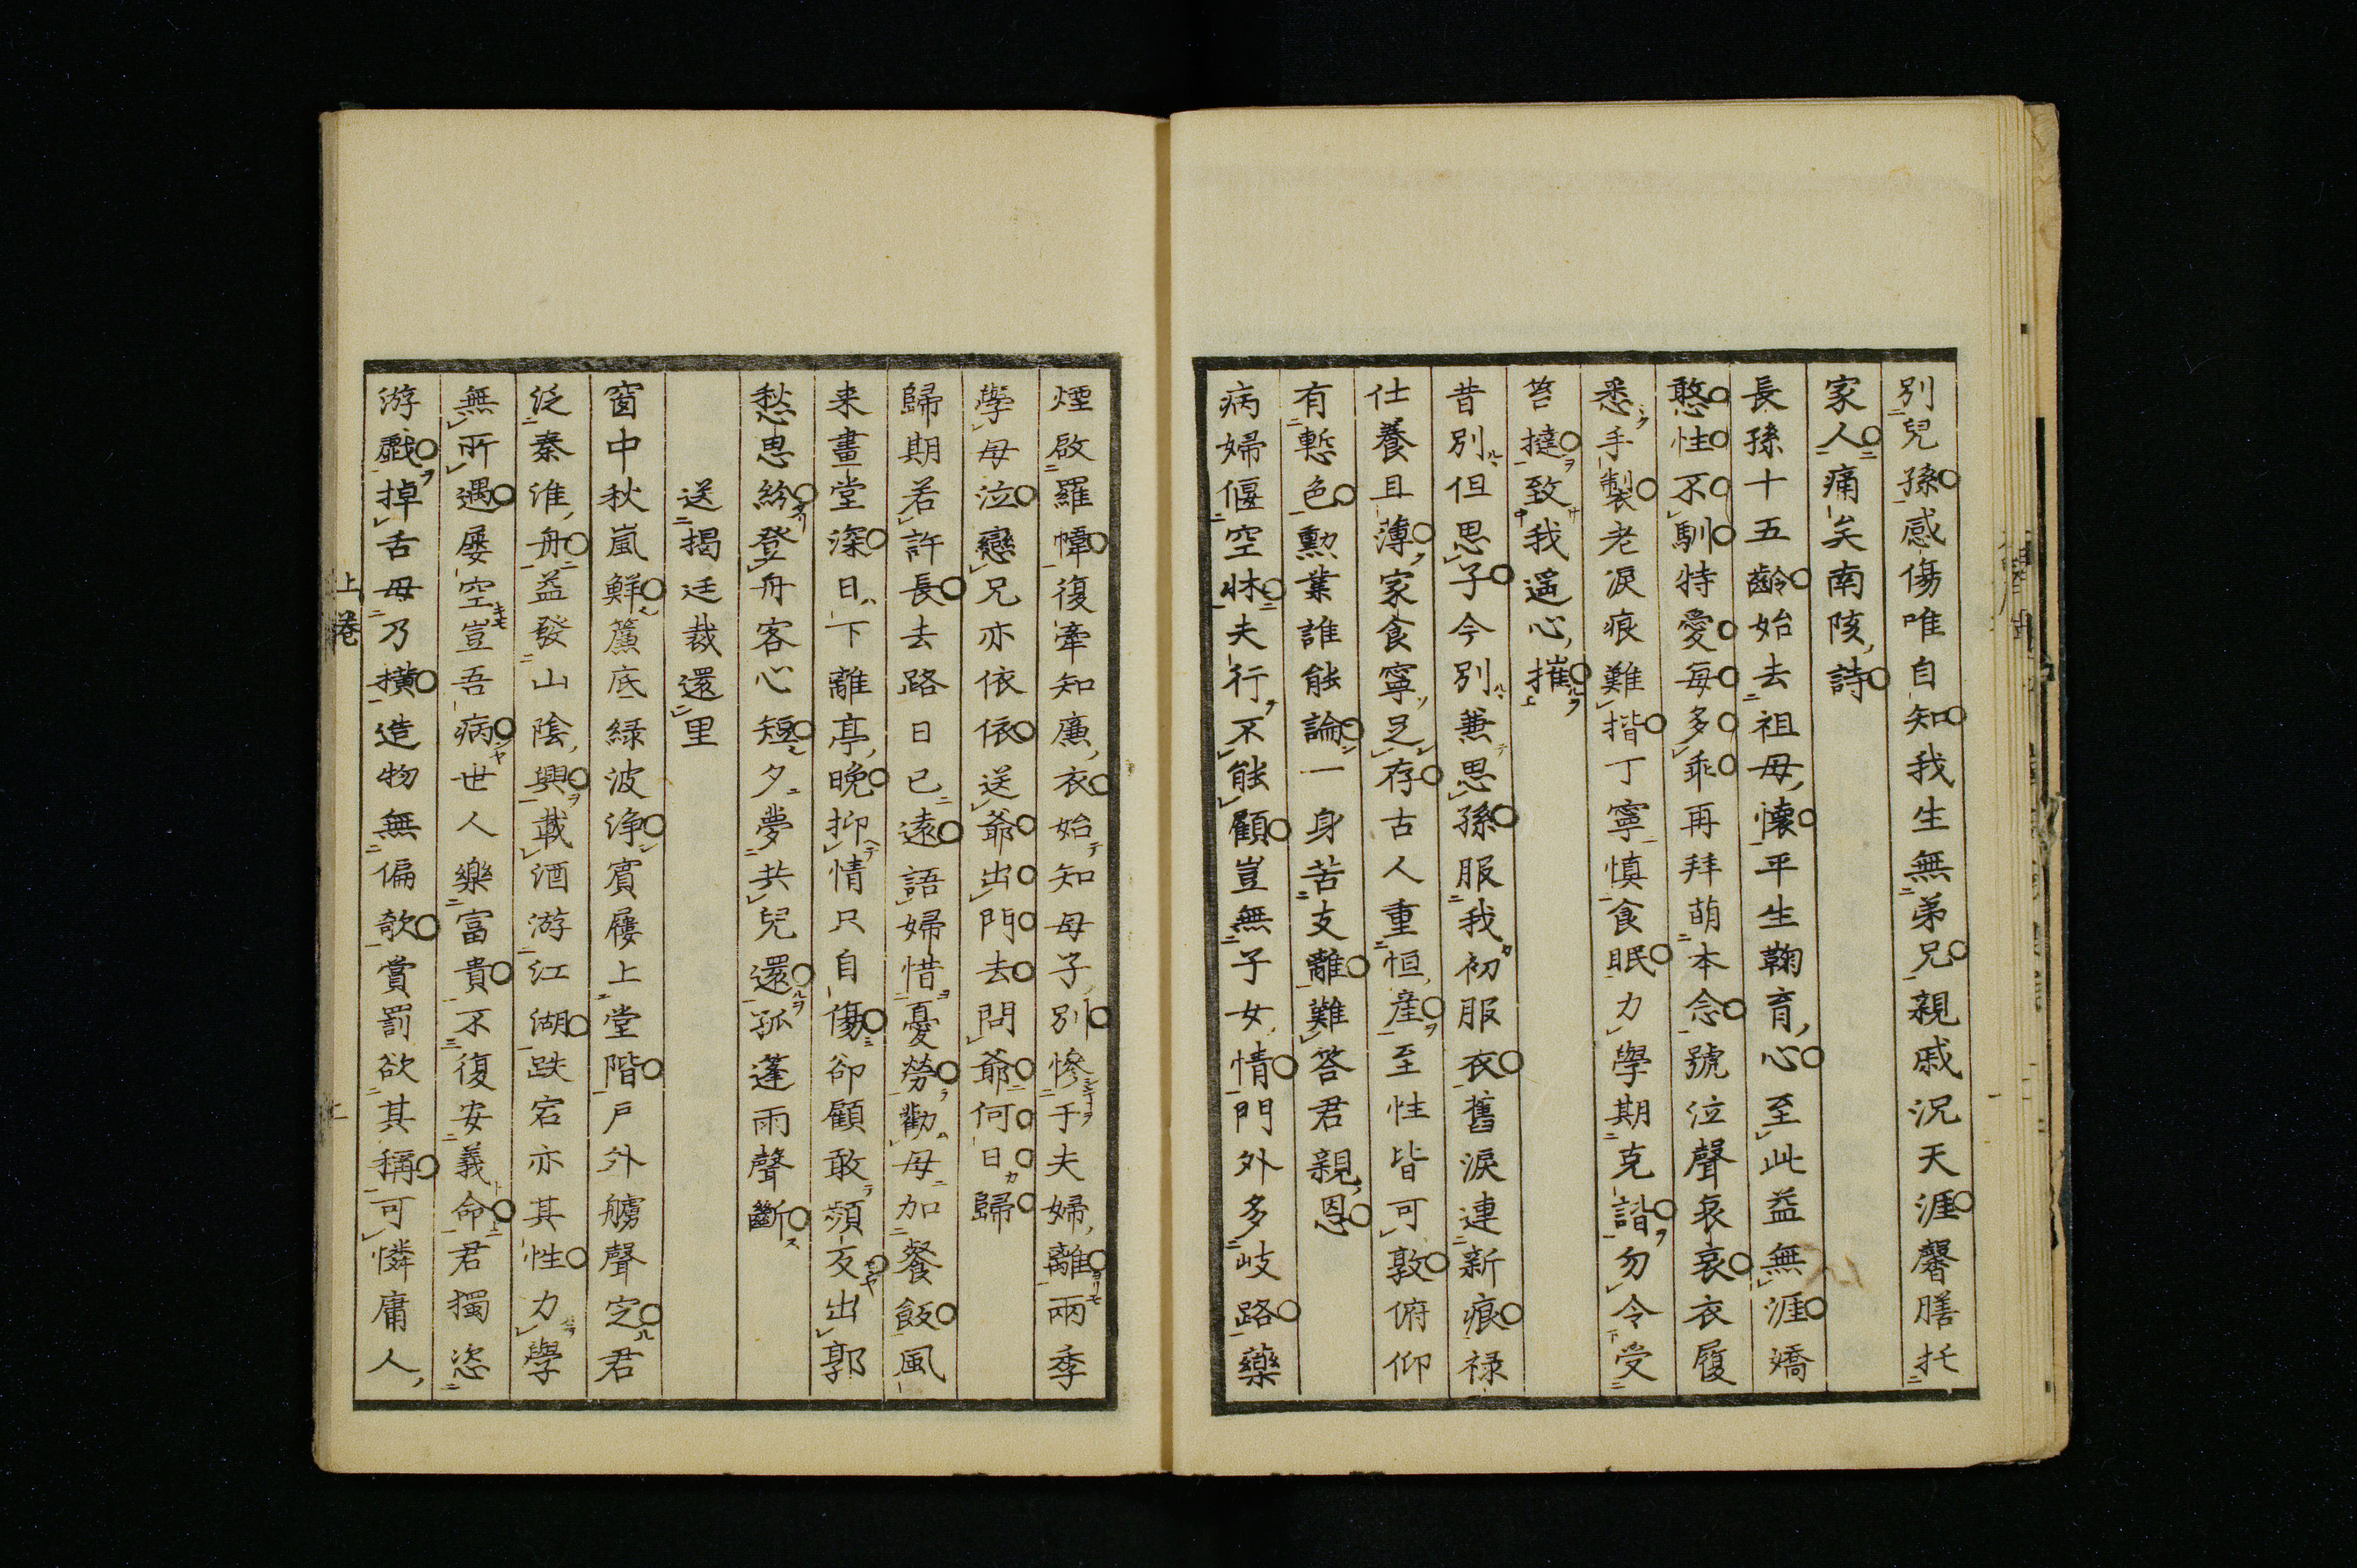 別兒孫感傷唯自知我生無弟兄親戚況天涯馨膳托
家人痛矣南陔詩
長孫十五齡始去祖母懷平生鞠育心至此益無涯嬌
憨性不馴特愛每多乖再拜萌本念號泣聲哀哀衣履
悉手製老淚痕難揩丁寧慎食眠力學期克諧勿令受
笞撻致我遥心摧
昔別但思子今別兼思孫服我初服衣舊淚連新痕祿
仕養且薄家食寧足存古人重恒産至性皆可敦俯仰
有慙色勲業誰能論一身苦支離難答君親恩
病婦偃空牀夫行不能顧豈無子女情門外多岐路藥
煙啟羅幃復牽知廉衣始知母子別慘于夫婦離兩季
學母泣戀兄亦依依送爺出門去問爺何日歸
歸期若許長去路日已遠語婦惜憂勞勸母加餐飯風
来畫堂深日下離亭晩抑情只自傷卻顧敢頻反出郭
愁思紛登舟客心短夕夢共兒還孤蓬雨聲斷
送揭廷裁還里
窗中秋嵐鮮簾底緑波浄賓屨上堂階戸外艣聲定君
泛秦淮舟益發山陰興載酒游江湖跌宕亦其性力學
無所遇屡空豈吾病世人樂富貴不復安義命君獨恣
游戲掉舌毋乃横造物無偏欹賞罰欲其稱可憐庸人
上卷